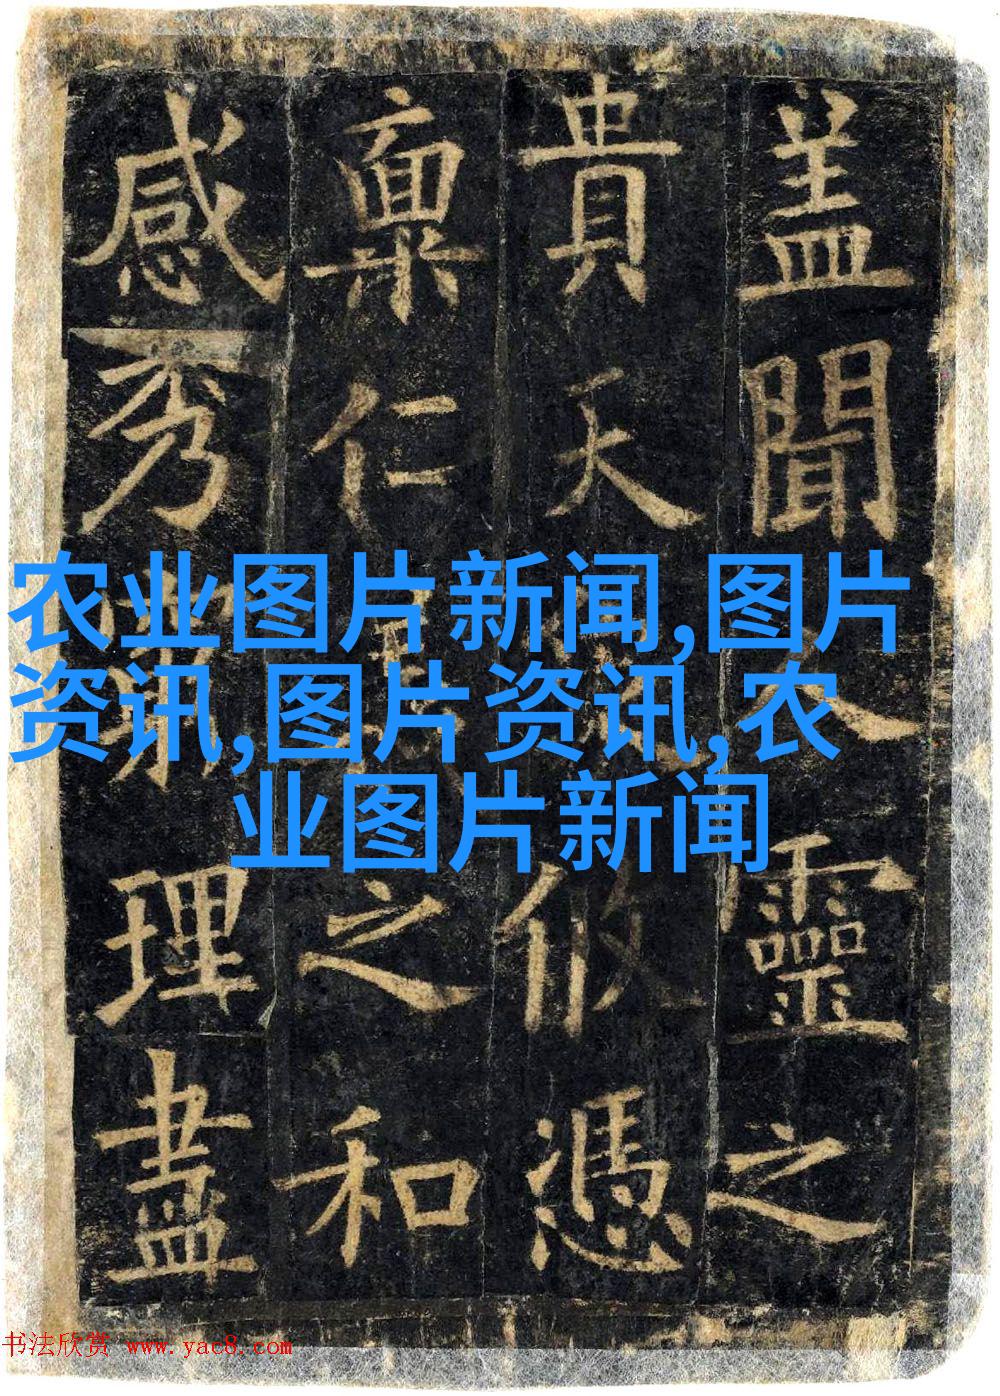 盖聞人靈之
貴天攸憑
稟仁之和
感秀理盡
农业图片新闻,图片
资讯,图片资讯,农
业图片新闻
书法欣赏 www.yac8.com